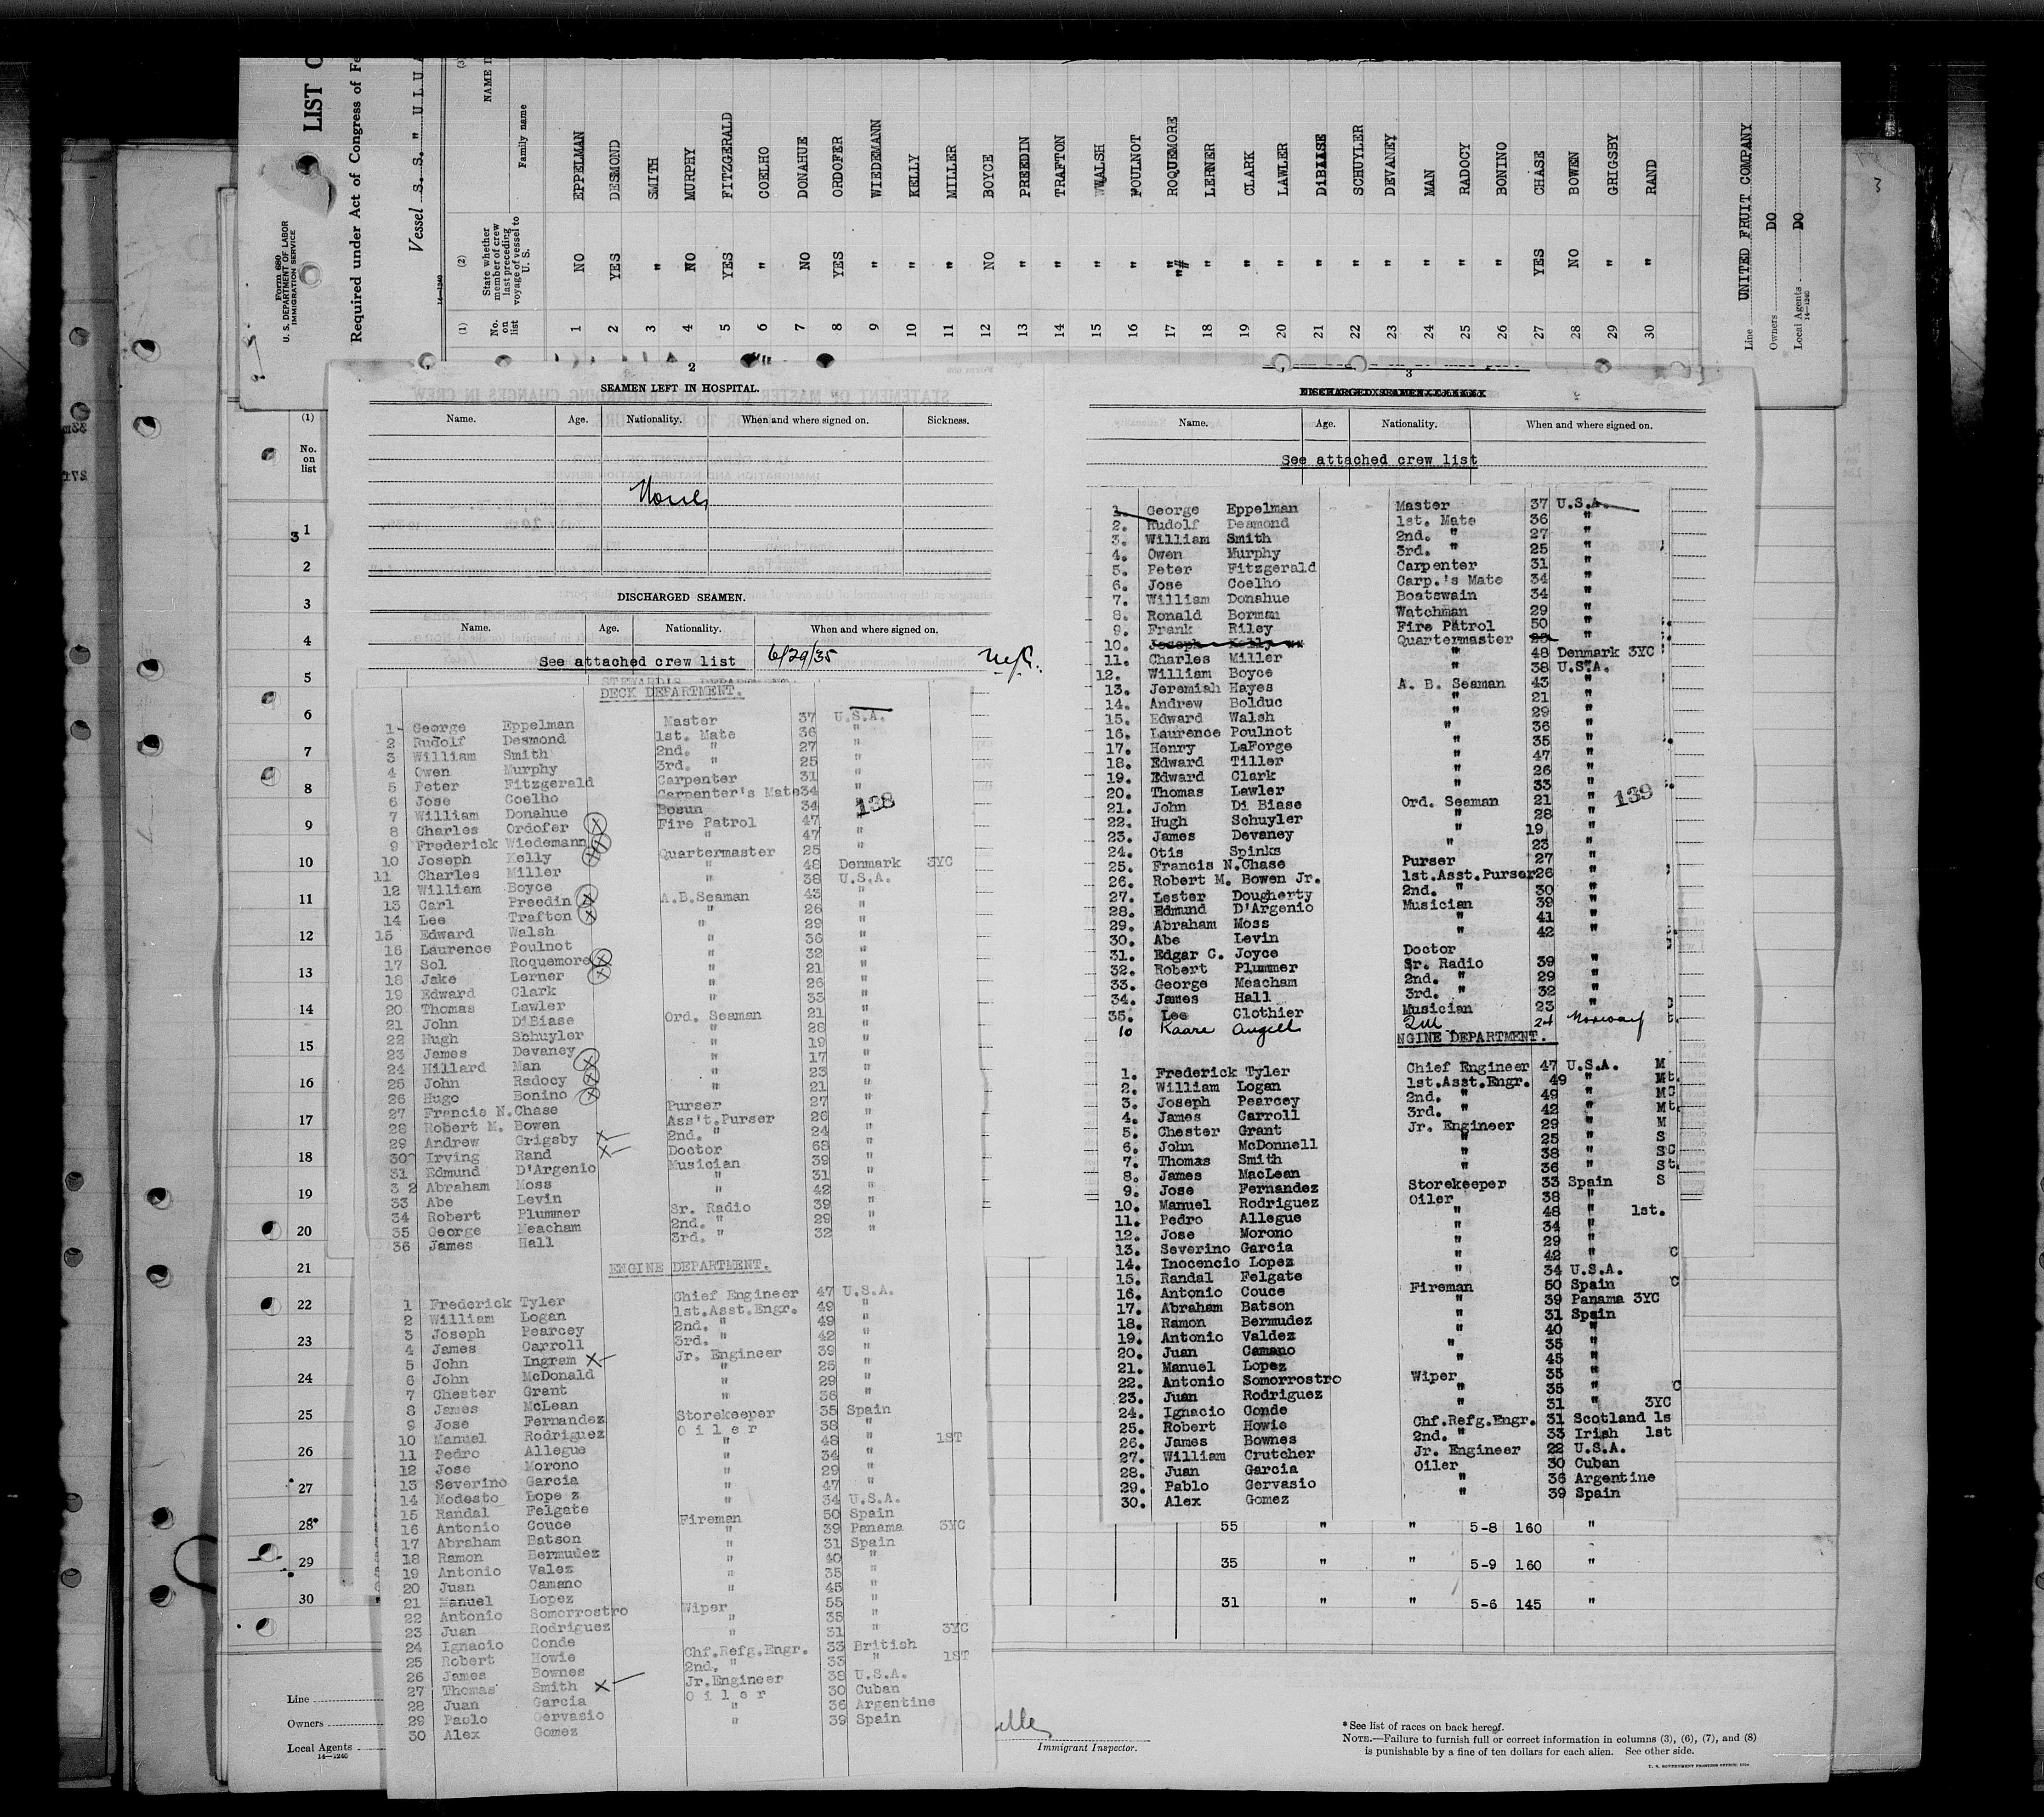 Form 680
U. S. DEPARTMENT OF LABOR
IMMIGRATION SERVICE
LIST
Required under Act of Congress of
Vessel S. S. "
14—1240
(1) (2) (3)
No. on list
State whether member of crew last preceding voyage of vessel to U. S.
Family name
1 NO EPPELMAN
2 YES DESMOND
3 " SMITH
4 NO MURPHY
5 YES FITZGERALD
6 " COELHO
7 NO DONAHUE
8 YES ORDOFER
9 " WIEDEMANN
10 " KELLY
11 " MILLER
12 NO BOYCE
13 " PREEDIN
14 " TRAFTON
15 " WALSH
16 " POULNOT
17 " ROQUEMORE
18 " LERNER
19 " CLARK
20 " LAWLER
21 " DiBIASE
22 " SCHUYLER
23 " DEVANEY
24 " MAN
25 " RADOCY
26 " BONINO
27 YES CHASE
28 NO BOWEN
29 " GRIGSBY
30 " RAND
Line UNITED FRUIT COMPANY
Owners DO
Local Agents DO
14—1240
2
SEAMEN LEFT IN HOSPITAL.
Name. Age. Nationality. When and where signed on. Sickness.
None
DISCHARGED SEAMEN.
Name. Age. Nationality. When and where signed on.
See attached crew list 6/29/35
DECK DEPARTMENT.
1 George Eppelman Master 37 U.S.A.
2 Rudolf Desmond 1st. Mate 36 "
3 William Smith 2nd. " 27 "
4 Owen Murphy 3rd. " 25 "
5 Peter Fitzgerald Carpenter 31 "
6 Jose Coelho Carpenter's Mate 34 "
7 William Donahue Bosun 34 "
138
8 Charles Ordofer Fire Patrol 47 "
9 Frederick Wiedemann " 47 "
10 Joseph Kelly Quartermaster 25 "
11 Charles Miller " 48 Denmark 3YC
12 William Boyce " 38 U.S.A.
13 Carl Preedin A.B.Seaman 43 "
14 Lee Trafton " 26 "
15 Edward Walsh " 29 "
16 Laurence Poulnot " 36 "
17 Sol Roquemore " 32 "
18 Jake Lerner " 21 "
19 Edward Clark " 26 "
20 Thomas Lawler " 33 "
21 John DiBiase Ord. Seaman 21 "
22 Hugh Schuyler " 28 "
23 James Devaney " 19 "
24 Hillard Man " 17 "
25 John Radocy " 23 "
26 Hugo Bonino " 21 "
27 Francis N.Chase Purser 27 "
28 Robert M. Bowen Ass't.Purser 26 "
29 Andrew Grigsby 2nd. " 24 "
30 Irving Rand Doctor 68 "
31 Edmund D'Argenio Musician 39 "
32 Abraham Moss " 31 "
33 Abe Levin " 42 "
34 Robert Plummer Sr. Radio 39 "
35 George Meacham 2nd. " 29 "
36 James Hall 3rd. " 32 "
ENGINE DEPARTMENT.
1 Frederick Tyler Chief Engineer 47 U.S.A.
2 William Logan 1st.Asst.Engr. 49 "
3 Joseph Pearcey 2nd. " 49 "
4 James Carroll 3rd. " 42 "
5 John Ingram Jr. Engineer 39 "
6 John McDonald " 25 "
7 Chester Grant " 29 "
8 James McLean " 36 "
9 Jose Fernandez Storekeeper 35 Spain
10 Manuel Rodriguez Oiler 38 "
11 Pedro Allegue " 48 " 1ST
12 Jose Morono " 34 "
13 Severino Garcia " 29 "
14 Modesto Lopez " 47 "
15 Randal Felgate " 34 U.S.A.
16 Antonio Couce Fireman 50 Spain
17 Abraham Batson " 39 Panama 3YC
18 Ramon Bermudez " 31 Spain
19 Antonio Valez " 40 "
20 Juan Camano " 35 "
21 Manuel Lopez " 45 "
22 Antonio Somorrostro Wiper 55 "
23 Juan Rodriguez " 35 "
24 Ignacio Conde " 31 " 3YC
25 Robert Howie Chf.Refg.Engr. 33 British
26 James Bownes 2nd. " 33 " 1ST
27 Thomas Smith Jr.Engineer 38 U.S.A.
28 Juan Garcia Oiler 30 Cuban
29 Pablo Gervasio " 36 Argentine
30 Alex Gomez " 39 Spain
3
DISCHARGED SEAMEN
Name. Age. Nationality. When and where signed on.
See attached crew list
1. George Eppelman Master 37 U.S.A.
2. Rudolf Desmond 1st. Mate 36 "
3. William Smith 2nd. " 27 "
4. Owen Murphy 3rd. " 25 "
5. Peter Fitzgerald Carpenter 31 "
6. Jose Coelho Carp.'s Mate 34 "
7. William Donahue Boatswain 34 "
8. Ronald Borman Watchman 29 "
9. Frank Riley Fire Patrol 50 "
10. Joseph Kelly Quartermaster "
11. Charles Miller " 48 Denmark 3YC
12. William Boyce " 38 U.S.A.
13. Jeremiah Hayes A. B. Seaman 43 "
14. Andrew Bolduc " 21 "
15. Edward Walsh " 29 "
16. Laurence Poulnot " 36 "
17. Henry LaForge " 35 "
18. Edward Tiller " 47 "
19. Edward Clark " 26 "
20. Thomas Lawler " 33 "
139
21. John Di Biase Ord. Seaman 21 "
22. Hugh Schuyler " 28 "
23. James Devaney " 19 "
24. Otis Spinks " 23 "
25. Francis N.Chase Purser 27 "
26. Robert M. Bowen Jr. 1st.Asst.Purser 26 "
27. Lester Dougherty 2nd. " 30 "
28. Edmund D'Argenio Musician 39 "
29. Abraham Moss " 41 "
30. Abe Levin " 42 "
31. Edgar C. Joyce Doctor "
32. Robert Plummer Sr. Radio 39 "
33. George Meacham 2nd. " 29 "
34. James Hall 3rd. " 32 "
35. Lee Clothier Musician 23 "
10 Kaare Angell QM 24 Norway
NGINE DEPARTMENT.
1. Frederick Tyler Chief Engineer 47 U.S.A. M
2. William Logan 1st.Asst.Engr. 49 " M
3. Joseph Pearcey 2nd. " 49 " M
4. James Carroll 3rd. " 42 " M
5. Chester Grant Jr. Engineer 29 " M
6. John McDonnell " 25 " S
7. Thomas Smith " 38 " S
8. James MacLean " 36 " S
9. Jose Fernandez Storekeeper 33 Spain S
10. Manuel Rodriguez Oiler 38 "
11. Pedro Allegue " 48 " 1st.
12. Jose Morono " 34 "
13. Severino Garcia " 29 "
14. Inocencio Lopez " 42 "
15. Randal Felgate " 34 U.S.A.
16. Antonio Couce Fireman 50 Spain
17. Abraham Batson " 39 Panama 3YC
18. Ramon Bermudez " 31 Spain
19. Antonio Valdez " 40 "
20. Juan Camano " 35 "
21. Manuel Lopez " 45 "
22. Antonio Somorrostro Wiper 35 "
23. Juan Rodriguez " 35 "
24. Ignacio Conde " 31 " 3YC
25. Robert Howie Chf.Refg.Engr. 31 Scotland 1s
26. James Bownes 2nd. " 33 Irish 1st
27. William Crutcher Jr. Engineer 22 U.S.A.
28. Juan Garcia Oiler 30 Cuban
29. Pablo Gervasio " 36 Argentine
30. Alex Gomez " 39 Spain
(1)
No. on list
1
2
3
4
5
6
7
8
9
10
11
12
13
14
15
16
17
18
19
20
21
22
23
24
25
26
27
28 55 " " 5-8 160 "
29 35 " " 5-9 160 "
30 31 " " 5-6 145 "
Line
Owners
Local Agents
14—1240
Immigrant Inspector.
* See list of races on back hereof.
NOTE.—Failure to furnish full or correct information in columns (3), (6), (7), and (8)
is punishable by a fine of ten dollars for each alien. See other side.